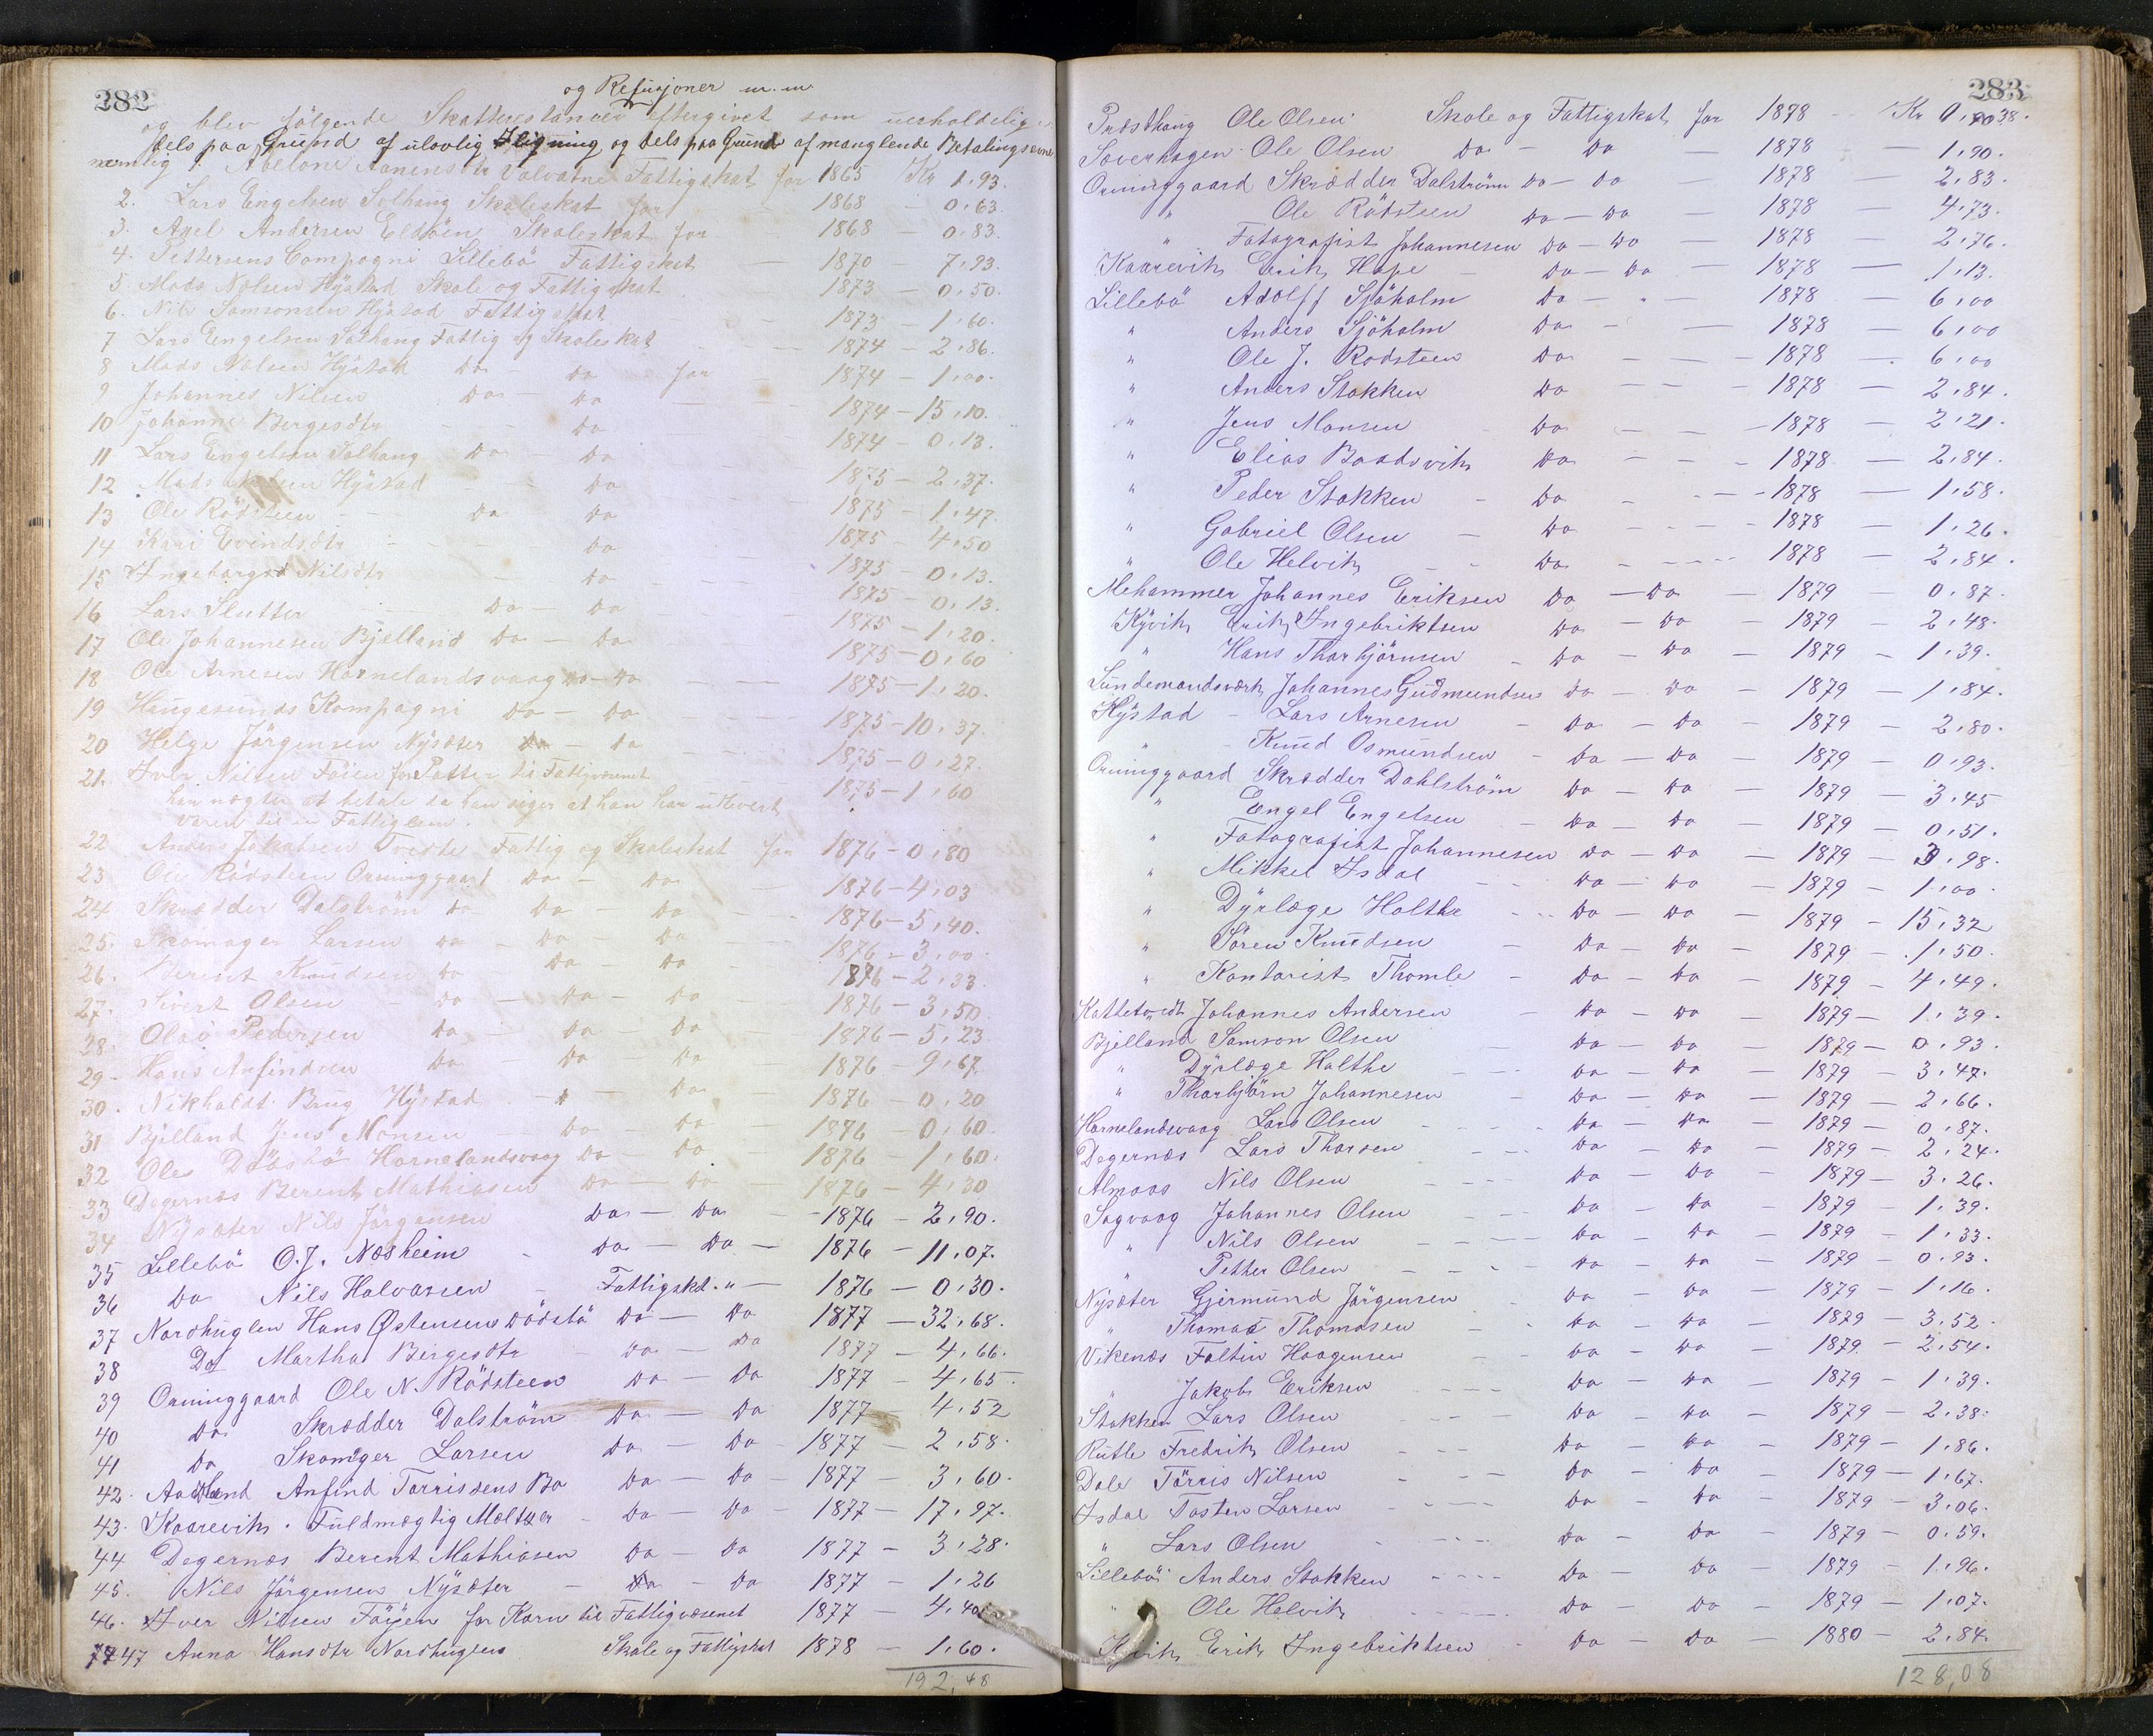 282
og Refusjoner m. m.
og blev følgende Skatterestancer eftergivet som uerholdelige
dels paa Grund af ulovlig Ligning og dels paa Grund af manglende Betalingsevne
nemlig 1 Abelone Aanensdtr Valvatne Fattigskat for 1865 Kr 1,93.
2. Lars Engelsen Solhaug Skoleskat for 1868 - 0,63.
3. Axel Andersen Eldøen Skoleskat for 1868 - 0,83.
4. Pettersens Compagni Lillebö Fattigskat - 1870 - 7,93.
5. Mads Nelsen Hÿstad Skole og Fattigskat 1873 - 0,50.
6. Nils Samsonsen Hÿstad Fattigskat - 1873 - 1,60.
7 Lars Engelsen Solhaug Fattig og Skoleskat - 1874 - 2,86.
8 Mads Nelsen Hÿstad Do - Do for - 1874 - 1,00.
9 Johannes Nilsen Do - Do - 1874 - 15,10.
10 Johanne Bergesdtr - Do 1874 - 0,13.
11 Lars Engelsen Solhaug Do - Do 1875 - 2,37.
12 Mads Nelsen Hÿstad - Do 1875 - 1,47.
13 Ole Rödsteen - Do Do 1875 - 4,50
14 Kari Evindsdtr - Do 1875 - 0,13.
15 Ingeborg Nilsdtr - Do 1875 - 0,13.
16 Lars Slutter - Do - Do 1875 - 1,20.
17 Ole Johannesen Bjelland Do - Do 1875 - 0,60
18 Ole Arnesen Hornelandsvaag Do - Do 1875 - 1,20.
19 Haugesunds Kompagni Do - Do 1875 - 10,37.
20 Helge Jörgensen Nÿsæter Do - Do 1875 - 0,27.
21. Iver Nilsen Föien for Potter til Fattigvæsenet 1875 - 1,60
han nægter at betale da han siger at han har udlevert
varen til en Fattiglem.
22 Anders Jakobsen Tveite Fattig og Skoleskat for 1876 - 0,80
23 Ole Rödsteen Orninggaard Do - Do 1876 - 4,03
24 Skrædder Dalström Do - Do - Do 1876 - 5,40.
25. Skomager Larsen Do - Do - Do 1876 - 3,00.
26. Berent Knudsen Do Do - Do 1876 - 2,33.
27. Sivert Olsen - Do - Do - Do 1876 - 3,50
28. Olav Pedersen Do - Do - Do 1876 - 5,23
29 - Hans Anfindsen Do Do Do 1876 - 9,67
30. Nikholdt Brug Hÿstad - Do - 1876 - 0,20
31 Bjelland Jens Monsen Do - Do - 1876 - 0,60.
32 Ole Dåsbö Hornelandsvaag Do - Do - 1876 - 1,60.
33 Degernes Berent Mathiasen Do - Do - 1876 - 4,30
34 Nÿsæter Nils Jörgensen Do - Do - 1876 - 2,90.
35 Lillebö O. J. Næsheim - Do - Do - 1876 - 11,07.
36 Do Nils Halvorsen - Fattigskt. " - 1876 - 0,30.
37 Nordhuglen Hans Østensen Dödsbö Do - Do 1877 - 32,68.
38 Do Martha Bergesdtr - Do - Do 1877 - 4,66.
39 Orninggaard Ole N. Rödsteen Do - Do 1877 - 4,65.
40 Do Skrædder Dalström Do - Do 1877 4,52
41 Do Skomager Larsen Do - Do - 1877 - 2,58.
42. Aadland Anfind Tarrisdens Bo Do - Do - 1877 - 3,60.
43. Kaarevik. Fuldmægtig Meltzer - Do - Do - 1877 - 17,97.
44 Degernes Berent Mathiasen Do - Do 1877 - 3,28.
45. Nils Jörgensen Nÿsæter - Do - Do 1877 - 1,26
46. Iver Nilsen Föÿen for Korn til Fattigvæsenet 1877 - 4,40
47 Anna Hansdtr Nordhuglen Skole og Fattigskat 1878 - 1,60.
192,48
283
Præsthaug Ole Olsen Skole og Fattigskat for 1878 - Kr 0,38.
Soverhagen Ole Olsen Do - Do - 1878 - 1,90.
Orninggaard Skrædder Dalström Do - Do - 1878 - 2,83.
" Ole Rödsteen Do - Do - 1878 - 4,73.
" Fotografist Johannesen Do - Do - 1878 - 2,76.
Kaarevik Erik Hope - Do - Do - 1878 - 1,13.
Lillebö Adolff Sjöholm Do - " - 1878 - 6,00
" Anders Sjöholm Do - - 1878 - 6,00
" Ole J. Rödsteen Do - - 1878 - 6,00
" Anders Stokken Do - - 1878 - 2,84.
" Jens Monsen Do - - 1878 - 2,21.
" Elias Baadsvik Do - - 1878 - 2,84.
" Peder Stokken - Do - - 1878 - 1,58.
" Gabriel Olsen - Do - - 1878 - 1,26.
" Ole Helvik - Do - - 1878 - 2,84.
Mehammer Johannes Eriksen Do - Do - 1879 0,87.
Kÿvik Erik Ingebriktsen Do - Do - 1879 - 2,48.
" Hans Thorbjörnsen - Do - Do - 1879 - 1,39.
Lundemandsværk Johannes Gudmundsen Do - Do - 1879 - 1,84.
Hÿstad - Lars Arnesen - Do - Do - 1879 - 2,80.
" - Knud Osmundsen - Do - Do - 1879 - 0,93.
Orninggaard Skrædder Dahlström Do - Do - 1879 - 3,45
" Engel Engelsen - Do - Do - 1879 - 0,51.
" Fotografist Johannesen Do - Do - 1879 - 3,98.
" Mikkel Isdal - Do - Do - 1879 - 1,00.
" Dÿrlæge Holthe - Do - Do - 1879 - 15,32
" Sören Knudsen - Do - Do - 1879 - 1,50.
" Kontorist Thomle - Do - Do - 1879 - 4,49.
Johannes Andersen - Do - Do - 1879 - 1,39.
Bjelland Samson Olsen - Do - Do - 1879 - 0,93.
" Dÿrlæge Holthe - Do - Do - 1879 - 3,47.
" Thorbjörn Johannesen - Do - Do - 1879 - 2,66.
Hornelandsvaag Lars Olsen - Do - Do - 1879 - 0,87.
Degernes Lars Thorsen - Do - Do - 1879 - 2,24.
Almaas Nils Olsen - Do - Do - 1879 - 3,26.
Sagvaag Johannes Olsen - Do - Do - 1879 - 1,39.
" Nils Olsen - Do - Do - 1879 - 1,33.
" Petter Olsen - Do - Do - 1879 - 0,93.
Nÿsæter Gjermund Jörgensen - Do - Do - 1879 - 1,16.
" Thomas Thomasen - Do - Do - 1879 - 3,52.
Vikenes Foltin Haagensen - Do - Do - 1879 - 2,54.
" Jakob Eriksen - Do - Do - 1879 - 1,39.
Stokken Lars Olsen - Do - Do - 1879 - 2,38.
Rutle Fredrik Olsen - Do - Do - 1879 - 1,86.
Dale Törris Nilsen - Do - Do - 1879 - 1,67.
Isdal Tosten Larsen - Do - Do - 1879 - 3,06.
" Lars Olsen - Do - Do - 1879 - 0,59.
Lillebö Anders Stokken - Do - Do - 1879 - 1,96.
" Ole Helvik - Do - Do - 1879 - 1,07.
Kÿvik Erik Ingebriktsen - Do - Do - 1880 - 2,84.
128,08